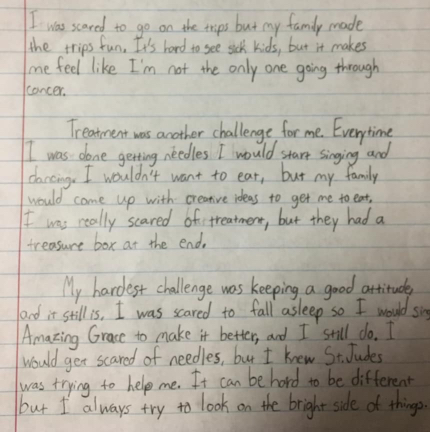 I was scared to go on the trips but my family made
the trips fun. It's hard to see sick kids, but it makes
me feel like I'm not the only one going through
cancer.
Treatment was another challenge for me. Everytime
I was done getting needles I would start singing and
dancing. I wouldn't want to eat, but my family
would come up with creative ideas to get me to eat.
I was really scared of treatment, but they had a
treasure box at the end.
My hardest challenge was keeping a good attitude,
and it still is. I was scared to fall asleep so I would sing
Amazing Grace to make it better, and I still do. I
would get scared of needles, but I knew St. Judes
was trying to help me. It can be hard to be different
but I always try to look on the bright side of things.